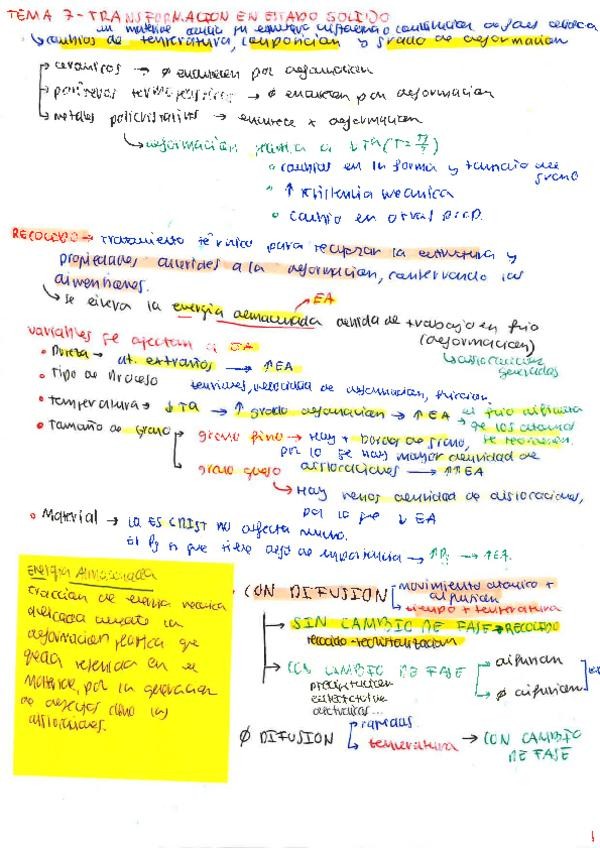 TEMA 7 - TRANSFORMACION EN ESTADO SOLIDO
un material
cambios de temperatura, composicion y grado de deformacion
ceramicos → Ø endurecen por deformacion
polimeros termoplasticos → Ø endurecen por deformacion
metales policristalinos → endurece x deformacion
deformacion plastica a ↓ Tª
cambios en la forma y tamaño del grano
↑ resistencia mecanica
cambio en otras prop.
RECOCIDO → tratamiento térmico para recuperar la estructura y
propiedades alterides a la deformacion, conservando las
dimensiones.
EA
se eleva la energia almacenada debida de trabajo en frio
(deformacion)
dislocaciones generadas
variables qe afectan a EA
• Pureza → at. extraños → ↑ EA
• Tipo de Proceso tensiones, velocidad de deformacion, friccion.
• temperatura → ↓ Ta → ↑ grado deformacion → ↑ EA
de los atomos
• Tamaño de grano
grano fino → Hay + bordes de grano,
por lo qe hay mayor densidad de
dislocaciones → ↑↑ EA
grano grueso
Hay menos densidad de dislocaciones,
por lo que ↓ EA
• Material → la ES CRIST no afecta mucho.
El Pf si que tiene algo de importancia → ↑ Pf → ↑ EA.
Energia Almacenada
Fraccion de energia mecanica
aplicada durante la
deformacion plastica que
queda retenida en el
material, por la generacion
de defectos como las
dislocaciones.
• CON DIFUSION
movimiento atomico +
difusion
tiempo + temperatura
SIN CAMBIO DE FASE → RECOCIDO
recocido - recristalizacion
CON CAMBIO DE FASE
difusion
Ø difusion
precipitacion
eutectoide
Ø DIFUSION
rapidas
temperatura → CON CAMBIO
DE FASE
1